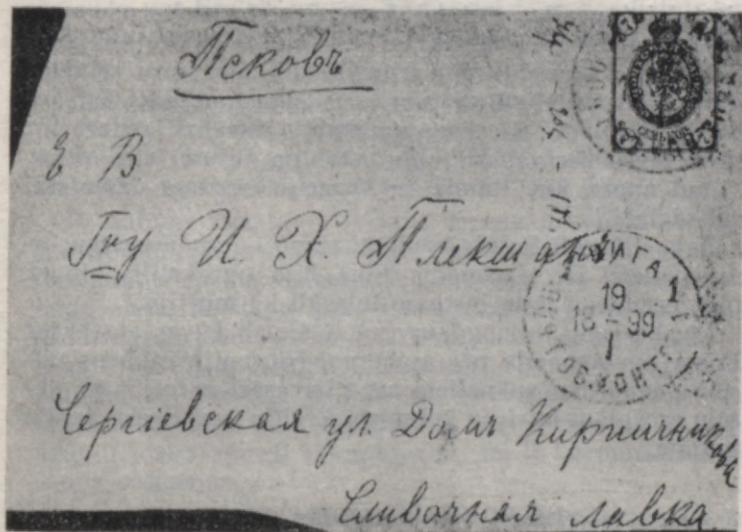 Псковъ
Е В
Гну И. Х. Плекшану
РИГА 1
19
18 I 99
Сергіевская ул. Домъ Кирпичникова
Сливочная лавка